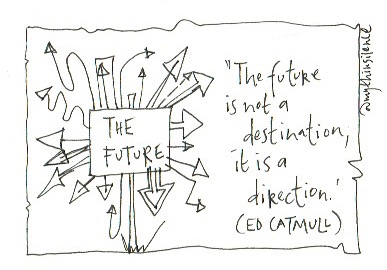 THE
FUTURE
"The future
is not a
destination,
it is a
direction.'
(ED CATMULL)
@mythinsilence